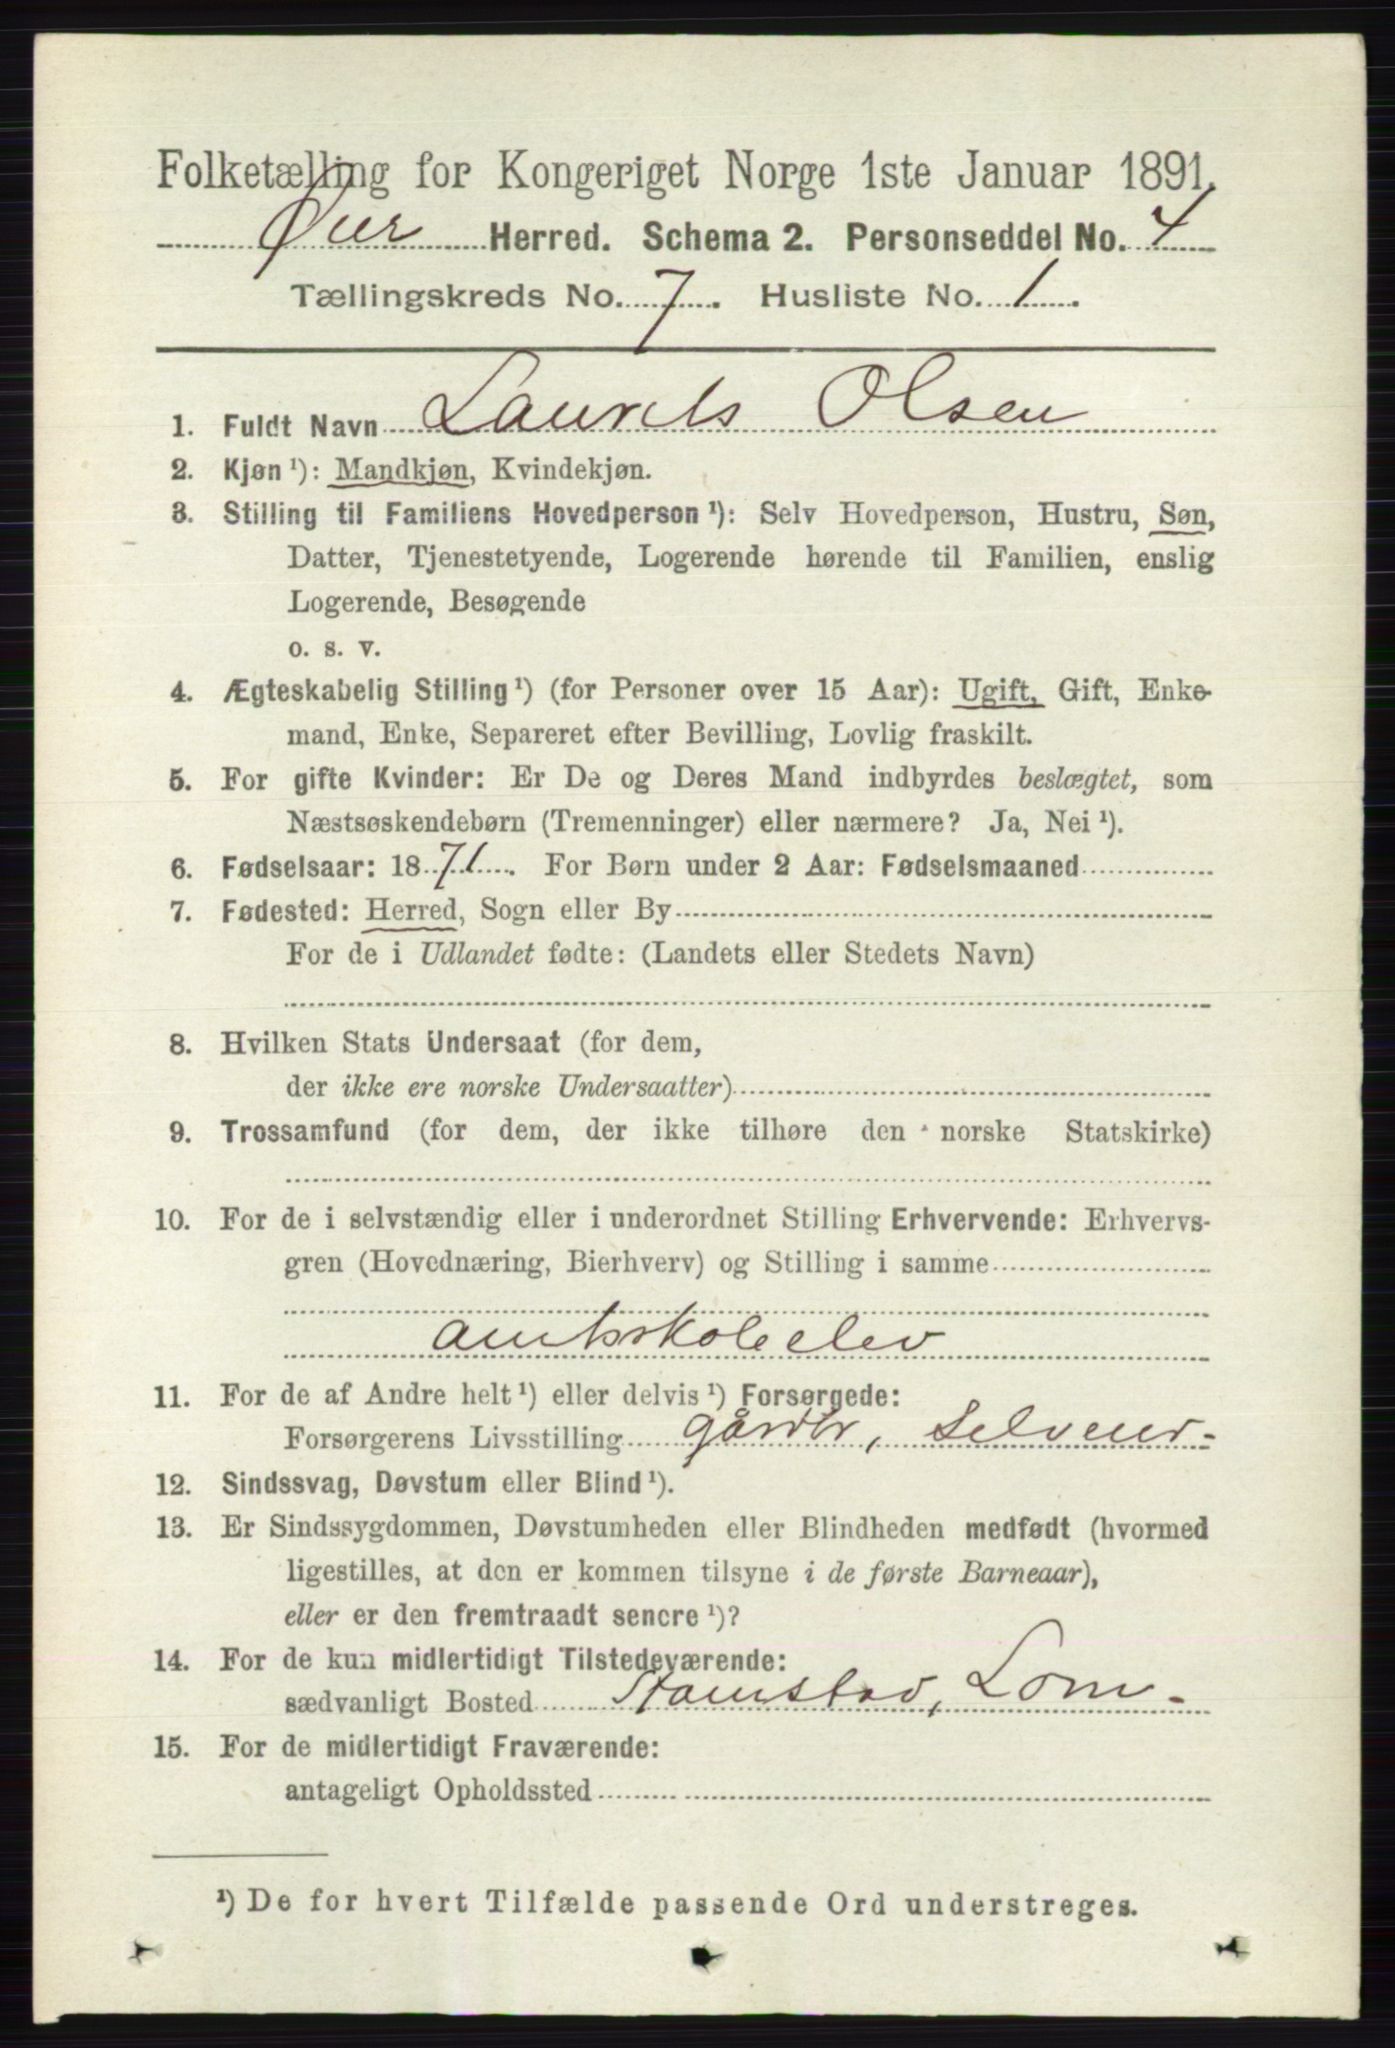 Folketælling for Kongeriget Norge 1ste Januar 1891.
Øier Herred. Schema 2. Personseddel No. 4
Tællingskreds No. 7. Husliste No. 1.
1. Fuldt Navn Laurits Olsen
2. Kjøn ¹): Mandkjøn, Kvindekjøn.
3. Stilling til Familiens Hovedperson ¹): Selv Hovedperson, Hustru, Søn,
Datter, Tjenestetyende, Logerende hørende til Familien, enslig
Logerende, Besøgende
o. s. v.
4. Ægteskabelig Stilling ¹) (for Personer over 15 Aar): Ugift, Gift, Enke-
mand, Enke, Separeret efter Bevilling, Lovlig fraskilt.
5. For gifte Kvinder: Er De og Deres Mand indbyrdes beslægtet, som
Næstsøskendebørn (Tremenninger) eller nærmere? Ja, Nei ¹).
6. Fødselsaar: 1871. For Børn under 2 Aar: Fødselsmaaned
7. Fødested: Herred, Sogn eller By
For de i Udlandet fødte: (Landets eller Stedets Navn)
8. Hvilken Stats Undersaat (for dem,
der ikke ere norske Undersaatter)
9. Trossamfund (for dem, der ikke tilhøre den norske Statskirke)
10. For de i selvstændig eller i underordnet Stilling Erhvervende: Erhvervs-
gren (Hovednæring, Bierhverv) og Stilling i samme
amtsskoleelev
11. For de af Andre helt ¹) eller delvis ¹) Forsørgede:
Forsørgerens Livsstilling gårdbr, Selveier-
12. Sindssvag, Døvstum eller Blind ¹).
13. Er Sindssygdommen, Døvstumheden eller Blindheden medfødt (hvormed
ligestilles, at den er kommen tilsyne i de første Barneaar),
eller er den fremtraadt senere ¹)?
14. For de kun midlertidigt Tilstedeværende:
sædvanligt Bosted Stamstad, Lom.
15. For de midlertidigt Fraværende:
antageligt Opholdssted
¹) De for hvert Tilfælde passende Ord understreges.